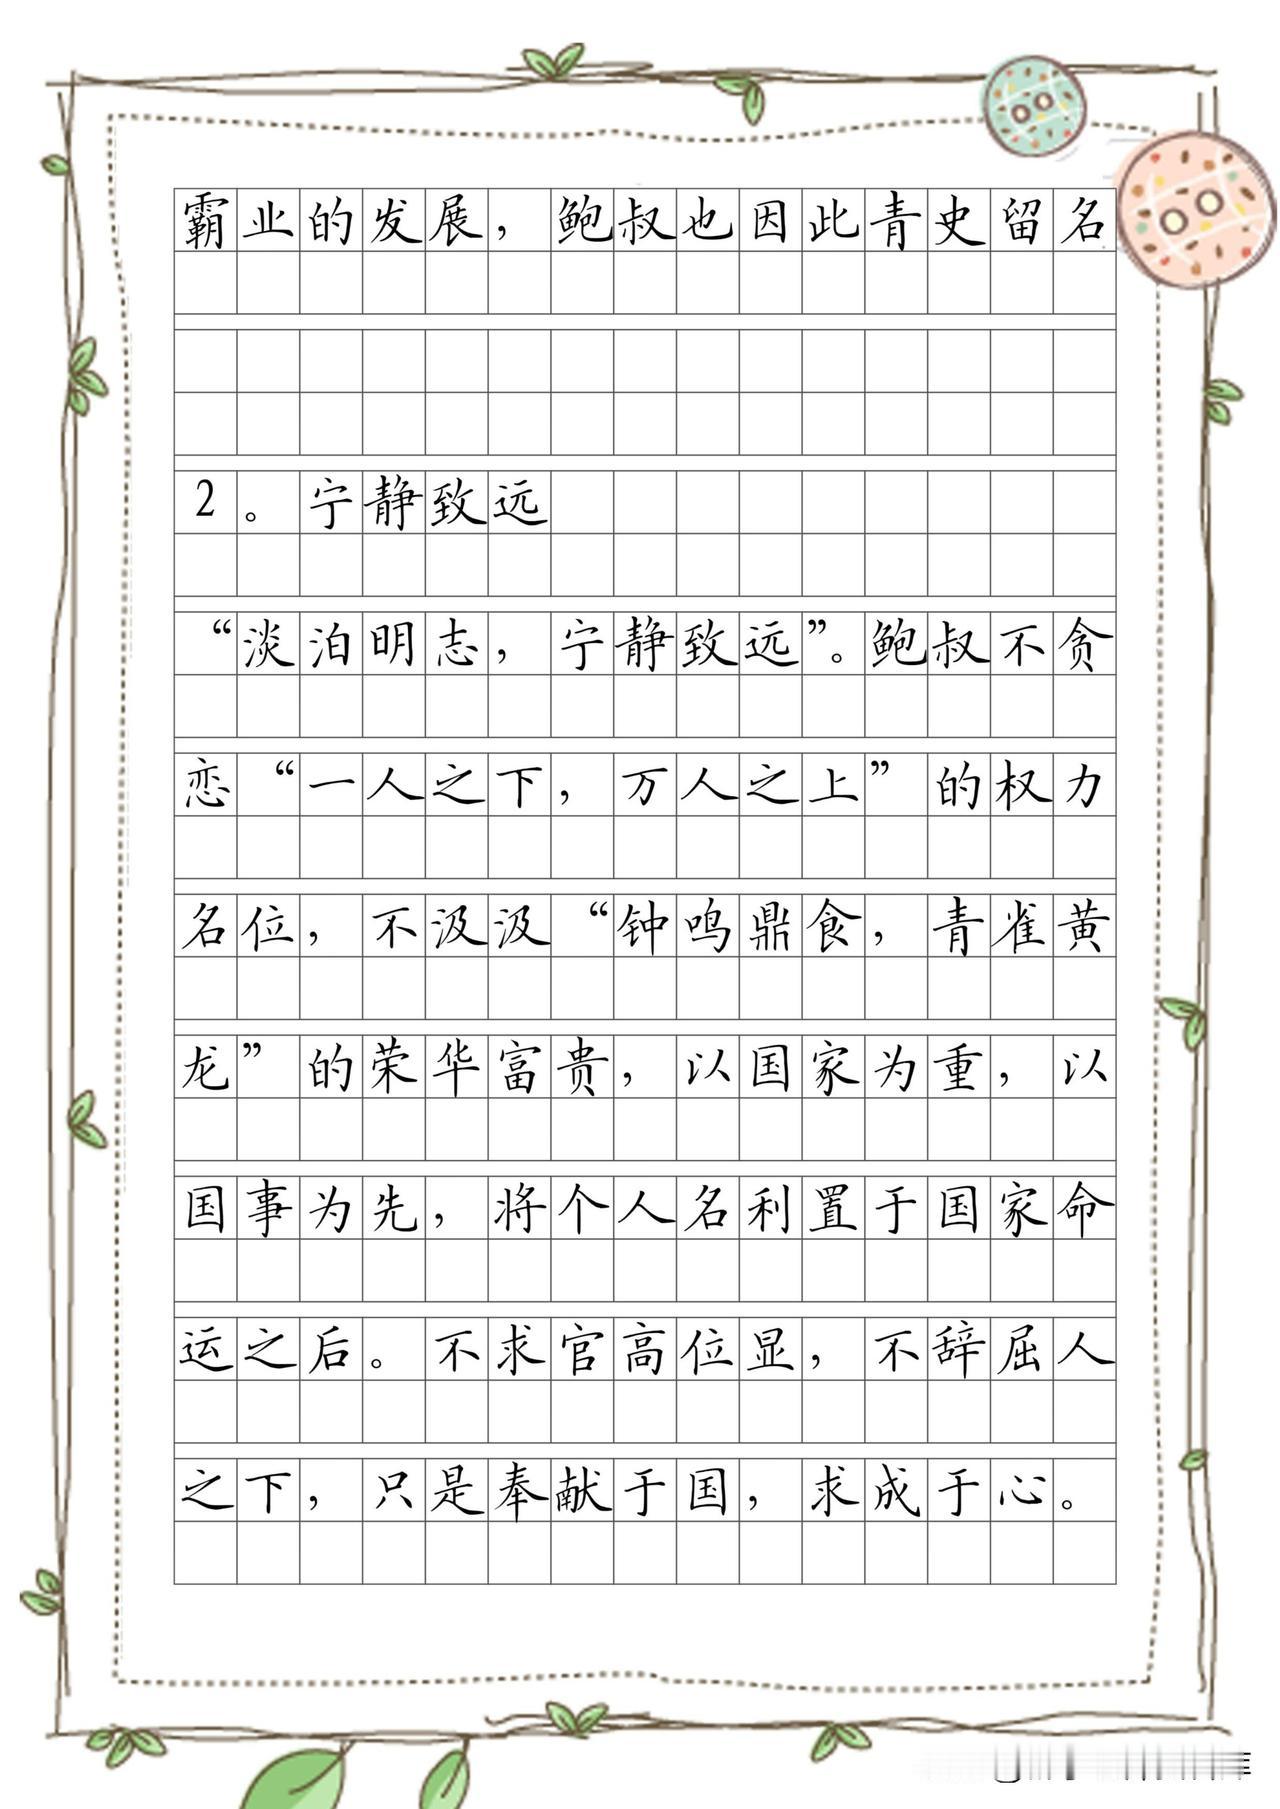 霸业的发展，鲍叔也因此青史留名.
2。宁静致远
“淡泊明志，宁静致远”。鲍叔不贪
恋“一人之下，万人之上”的权力
名位，不汲汲“钟鸣鼎食，青雀黄
龙”的荣华富贵，以国家为重，以
国事为先，将个人名利置于国家命
运之后。不求官高位显，不辞屈人
之下，只是奉献于国，求成于心。